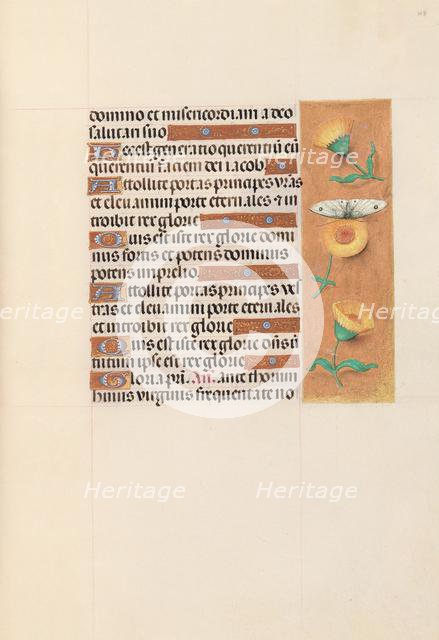 domino et misericordiam a deo
salutari suo
Hec est generatio querentiū eū
querentiū faciem dei iacob
Attollite portas principes vr̄as
et eleuamini porte eternales & in
troibit rex glorie
Quis est iste rex glorie domi
nus fortis et potens dominus
potens in prelio
Attollite portas principes ves
tras et eleuamini porte eternales
et introibit rex glorie
Quis est iste rex glorie dn̄s uir
tutum ipse est rex glorie
Gloria pr̄i. An̄. ante thorum
huius virginis frequentate no
Heritage
Heritage
Heritage
Heritage
Heritage
Heritage